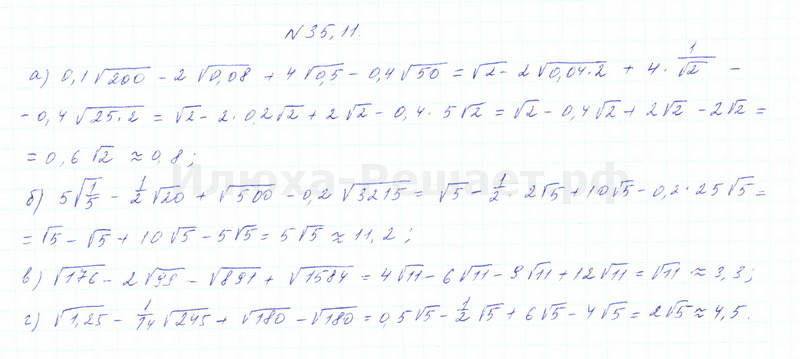 №35,11.
а) 0,1√200 - 2√0,08 + 4√0,5 - 0,4√50 = √2 - 2√0,04·2 + 4·1/√2 -
- 0,4√25·2 = √2 - 2·0,2√2 + 2√2 - 0,4·5√2 = √2 - 0,4√2 + 2√2 - 2√2 =
= 0,6√2 ≈ 0,8;
Илюха-Решает.рф
б) 5√1/5 - 1/2√20 + √500 - 0,2√3215 = √5 - 1/2·2√5 + 10√5 - 0,2·25√5 =
= √5 - √5 + 10√5 - 5√5 = 5√5 ≈ 11,2;
в) √176 - 2√99 - √891 + √1584 = 4√11 - 6√11 - 9√11 + 12√11 = √11 ≈ 3,3;
г) √1,25 - 1/14√245 + √180 - √180 = 0,5√5 - 1/2√5 + 6√5 - 4√5 = 2√5 ≈ 4,5.